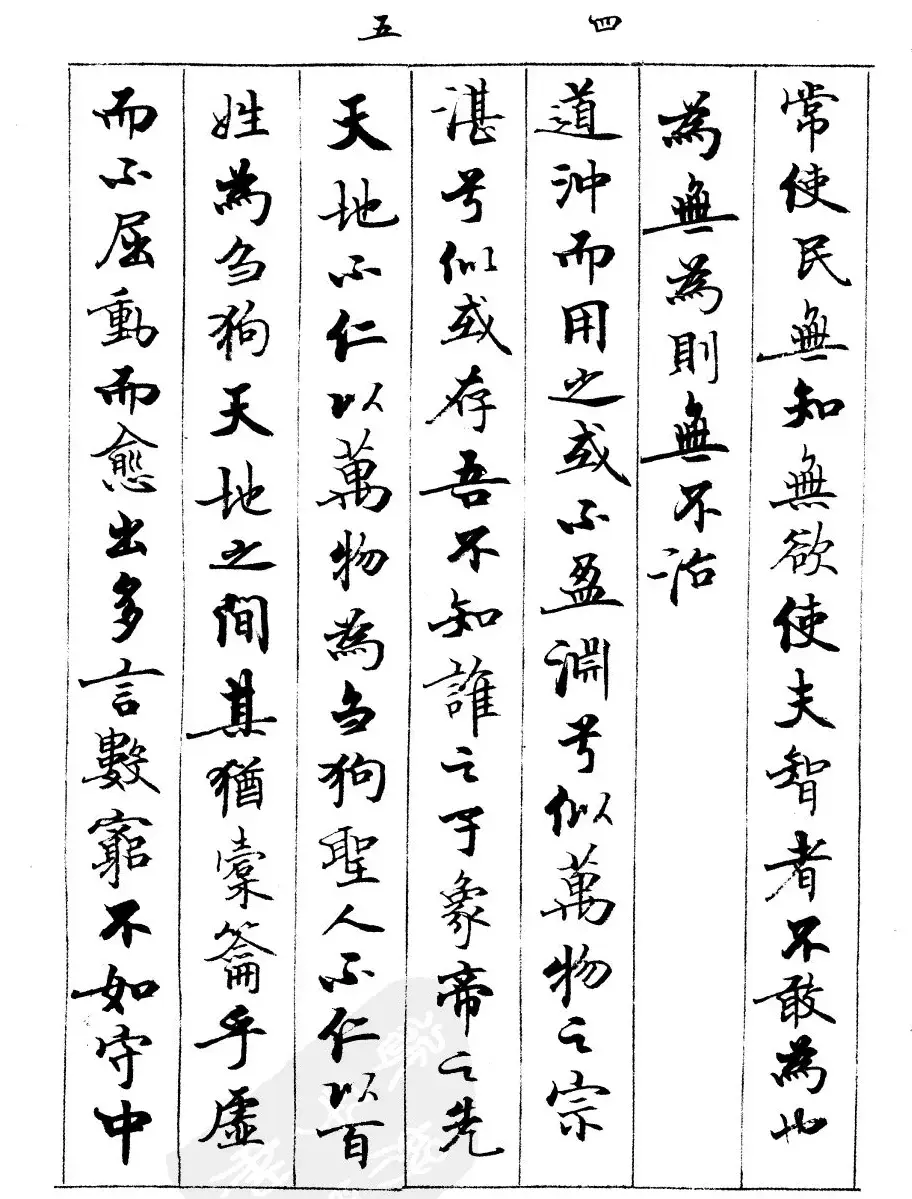 四
五
常使民無知無欲使夫智者不敢為也
為無為則無不治
道沖而用之或不盈淵兮似萬物之宗
湛兮似或存吾不知誰之子象帝之先
天地不仁以萬物為刍狗聖人不仁以百
姓為刍狗天地之間其猶橐籥乎虛
而不屈動而愈出多言數窮不如守中